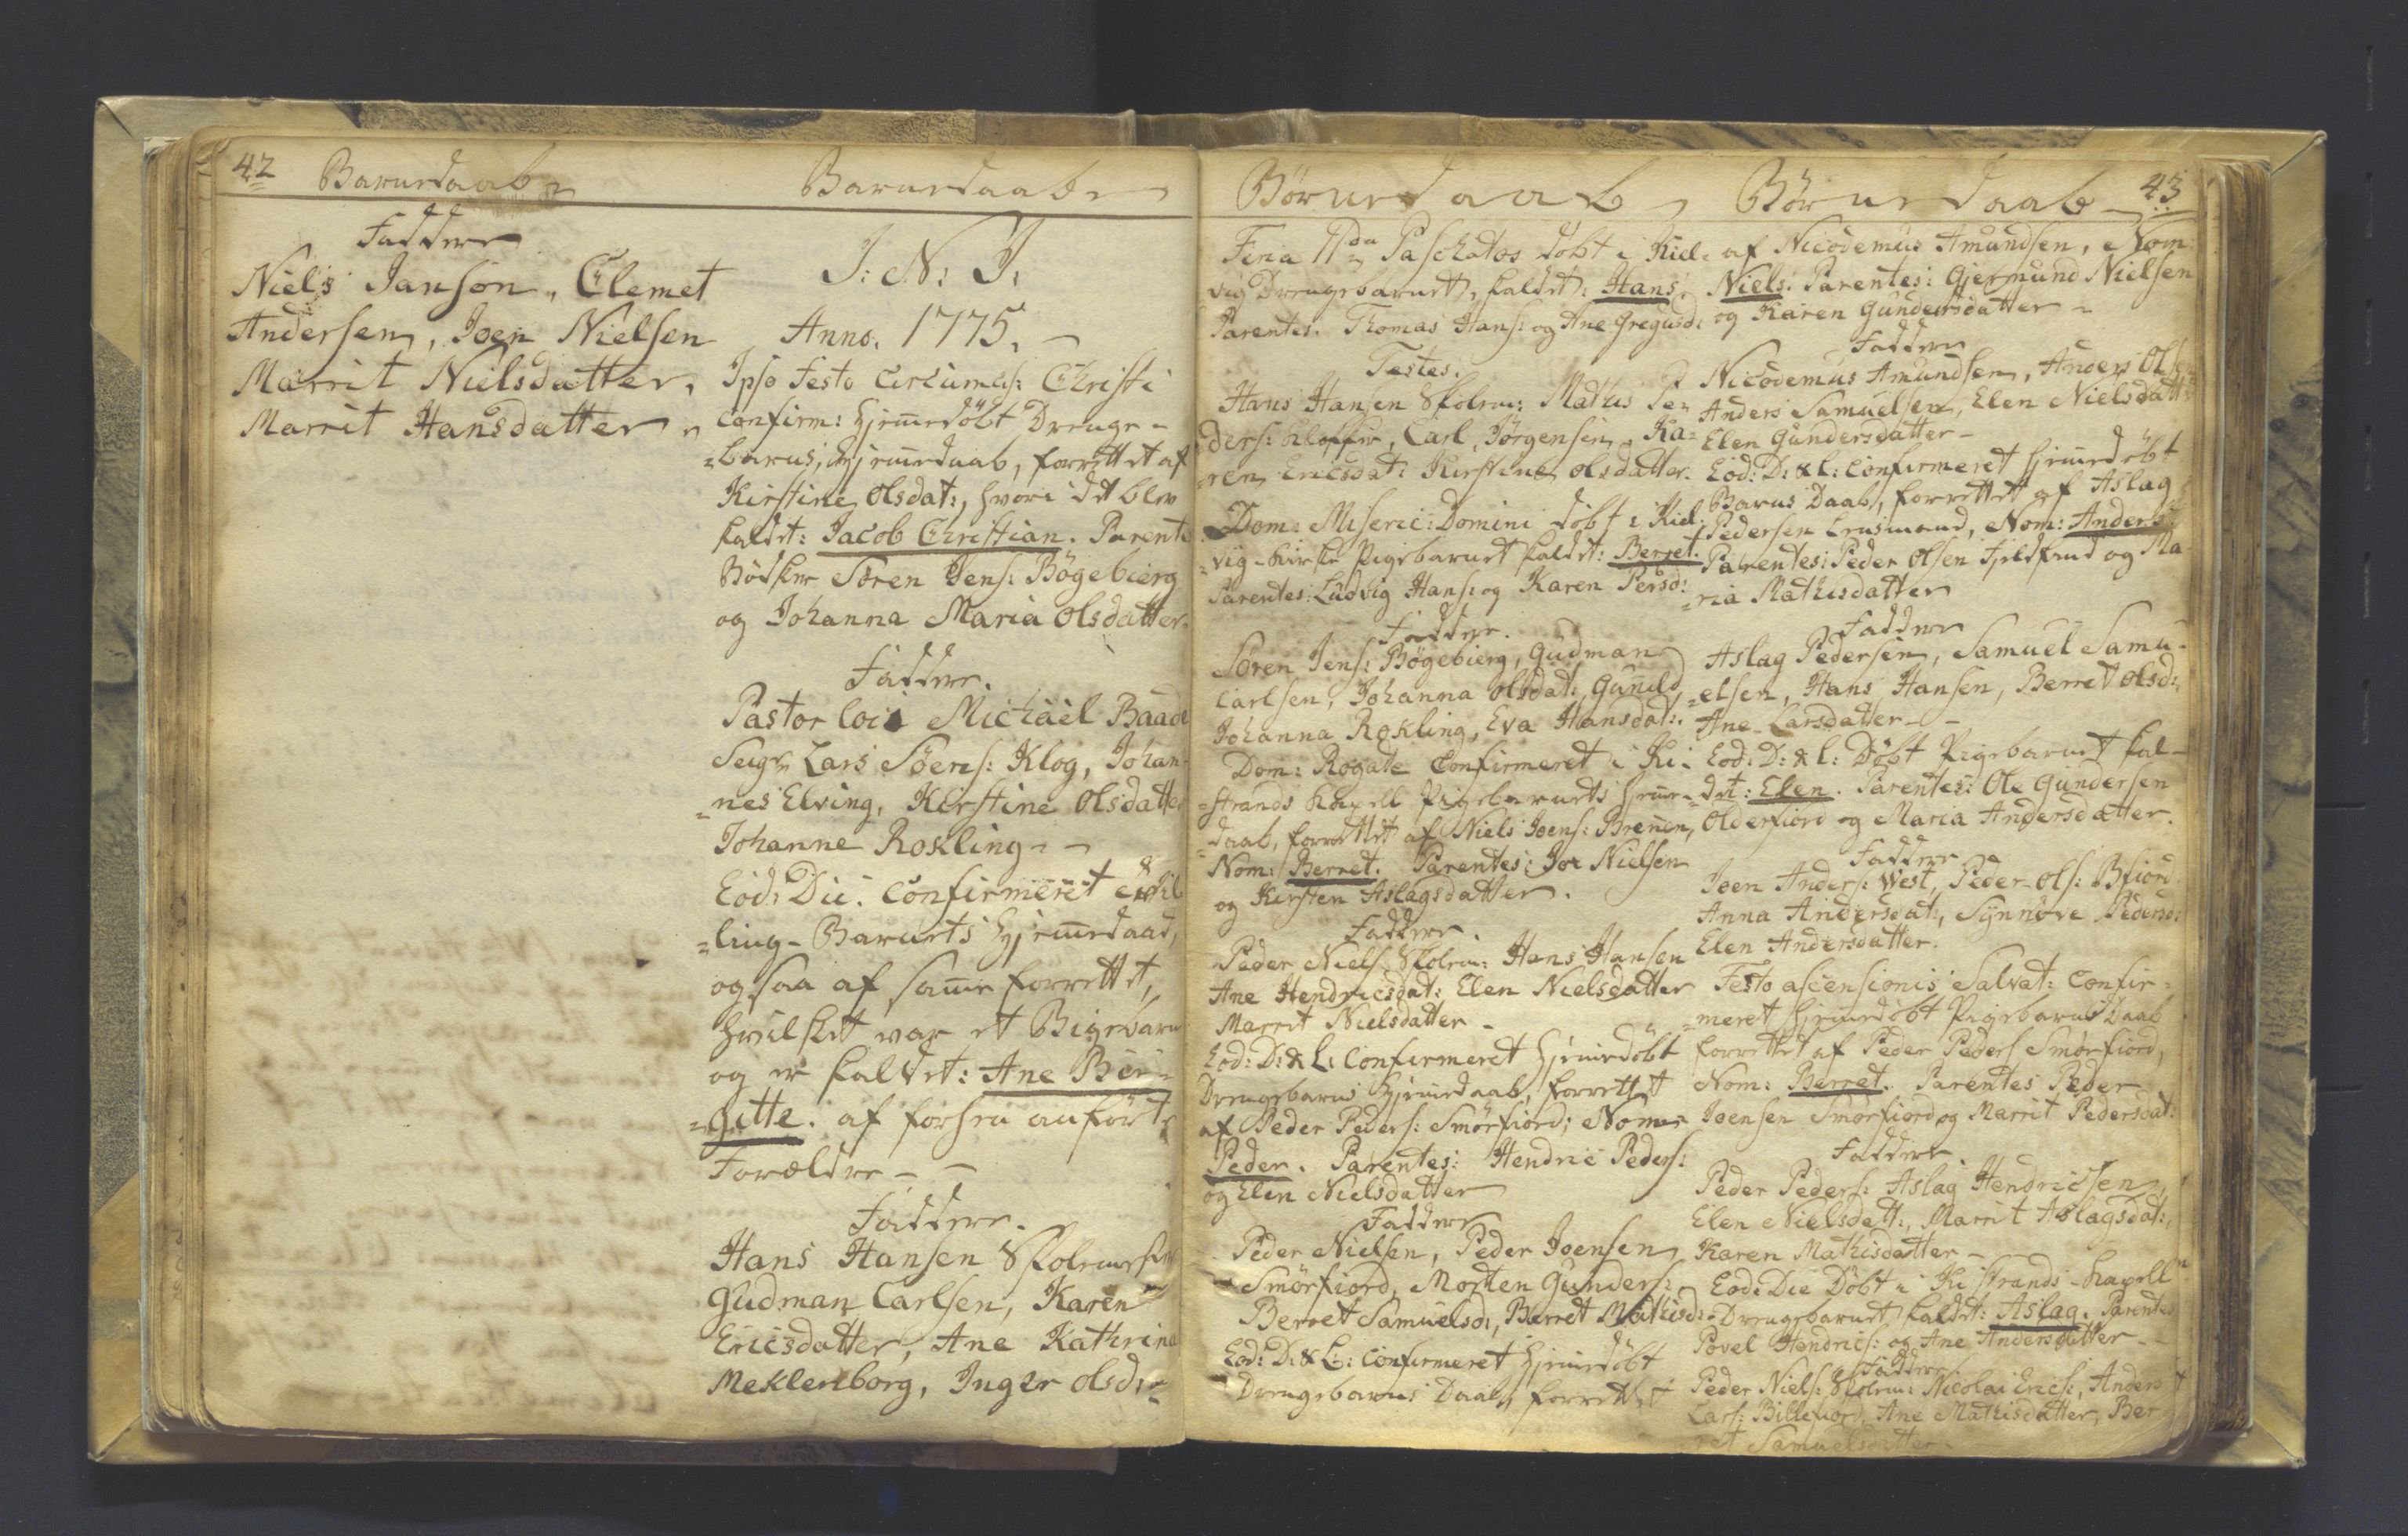 42 Barnedaab
Faddere
Niels Janson, Clemet
Andersen, Joen Nielsen
Marrit Nielsdatter,
Marrit Hansdatter
Barnedaab
J: N: J:
Anno. 1775.
Ipso Festo Circumcis: Christi
confirm: hjemmedöbt Drenge-
=barns, hjemmedaab, forrettet af
Kirstine Olsdat:, hvori det blev
kaldet: Jacob Christian. Parent:
Bödker Sören Jens: Bögebierg
og Johanna Maria Olsdatter.
Faddere.
Pastor loci Michäel Baade
Seigr Lars Söens: Klog, Johan-
=nes Elving, Kirstine Olsdatter
Johanne Rokling - -
Eod: Die. Confirmeret et Til
=ling-Barnets hjemmedaab,
ogsaa af samme forrettet,
hvilket var et Pigebarn
og er kaldet: Ane Bir=
=gitte. af forhen anförte
Forældre - -
Faddere.
Hans Hansen Skolemester
Gudman Carlsen, Karen
Ericsdatter, Ane Kathrina
Meklenborg, Inger Olsd:
Börnedaab
Feria IIda Paschatos döbt i Kiel=
vig Drengebarnet, kaldet: Hans.
Parentes. Thomas Hans: og Ane Gregusd:
Testes.
Hans Hansen Skolem: Mathis Pe=
ders: Kloster, Carl Jörgensen, Ka=
=ren Ericsdat: Kirstine Olsdatter.
Dom: Miseric: Domini döbt i Kiel=
=vig-kirke Pigebarnet kaldet: Berret.
Parentes: Ludvig Hans: og Karen Persd:
Faddere.
Sören Jens: Bögebierg, Gudman
Carlsen, Johanna Olsdat:, Gunild
Johanna Rokling, Eva Hansdat:.
Dom: Rogate Confirmeret i Ki=
=strands Kapell Pigebarnets hjemme=
=daab, forrettet af Niels Joens: Brenen,
Nom: Berret. Parentes: Joe Nielsen
og Kirsten Aslagsdatter.
Faddere.
Peder Niels: Skolem: Hans Hansen
Ane Hendricsdat: Elen Nielsdatter
Marrit Nielsdatter -
Eod: D: & L: Confirmeret hjemmedöbt
Drengebarns hjemmedaab, forrettet
af Peder Peders: Smörfiord; Nom:
Peder. Parentes: Hendric Peders:
og Elen Nielsdatter
Faddere
Peder Nielsen, Peder Joensen
Smörfiord, Morten Gunders:
Berret Samuelsd:, Berret Mathisd:
Eod: D: & L: Confirmeret hjemmedöbt
Drengebarns Daab, forrettet
Börnedaab 43
af Nicodemus Amundsen, Nom:
Niels. Parentes: Gjermund Nielsen
og Karen Gundersdatter -
Faddere
Nicodemus Amundsen, Anders Olsen
Anders Samuelsen, Elen Nielsdatt:
Elen Gundersdatter -
Eod: D: & L: Confirmeret hjemmedöbt
Barns Daab, forrettet af Aslag
Pedersen Lensmand, Nom: Anders
Parentes: Peder Olsen Fieldfind og Ma
=ria Mathisdatter
Faddere
Aslag Pedersen, Samuel Samu-
=elsen, Hans Hansen, Berret Olsd:,
Ane Larsdatter - -
Eod: D: & L: Döbt Pigebarnet kal-
=det: Elen. Parentes: Ole Gundersen
Olderfiord og Maria Andersdatter.
Faddere
Joen Anders: West, Peder Ols: Bfiord
Anna Andersdat:, Synnöve Pedersd:
Elen Andersdatter.
Festo ascensionis Salvat: Confir=
=meret hjemmedöbt Pigebarns Daab
forrettet af Peder Peders: Smörfiord,
Nom: Berret. Parentes Peder
Joensen Smörfiord og Marrit Pedersdat:
Faddere.
Peder Peders: Aslag Hendricsen,
Elen Nielsdatt:, Marrit Aslagsdat:,
Karen Mathisdatter -
Eod: Die Döbt i Kistrands-Kapell
Drengebarnet kaldet: Aslag. Parentes
Povel Hendrics: og Ane Andersdatter -
Faddere
Peder Niels: Skolem: Nicolai Erics:, Anders
Lars: Billefiord, Ane Mathisdatter, Ber
ret Samuelsdatter -